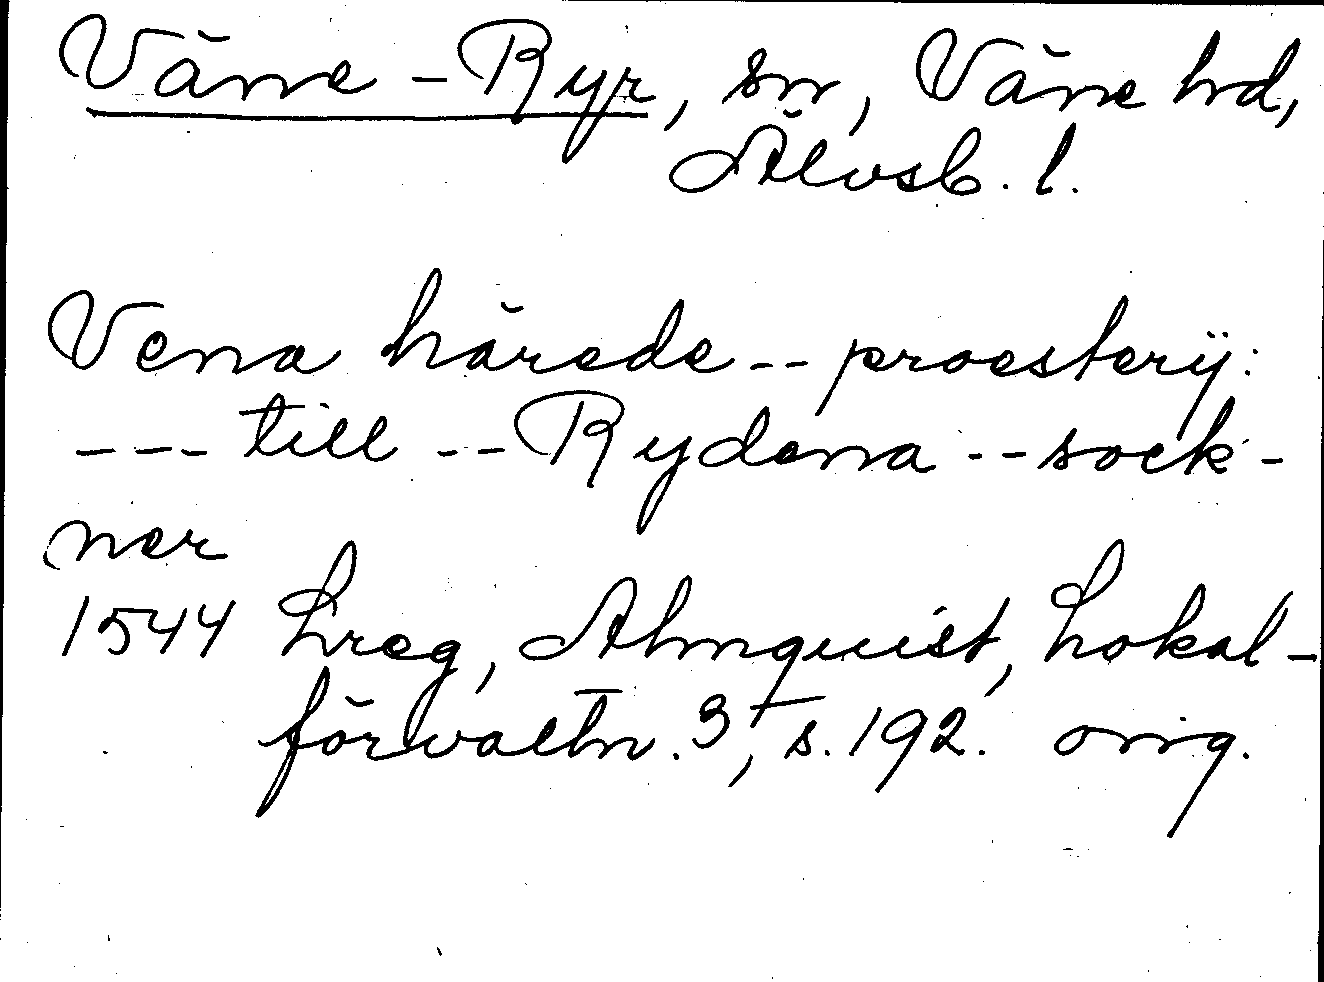 Väne-Ryr, sn, Väne hd,
Älvsb. l.
Vena härede -- proesterij:
--- till -- Rydena -- sock-
ner
1544 Lreg, Almquist, Lokal-
förvaltn. 3, s. 192. orig.